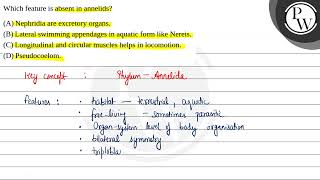 Which feature is absent in annelids?
PW
(A) Nephridia are excretory organs.
(B) Lateral swimming appendages in aquatic form like Nereis.
(C) Longitudinal and circular muscles helps in locomotion.
(D) Pseudocoelom.
Key concept : Phylum - Annelida
features : • habitat — terrestrial, aquatic
• free-living — sometimes parasitic
• Organ-system level of body organisation
• bilateral symmetry
• triplobla